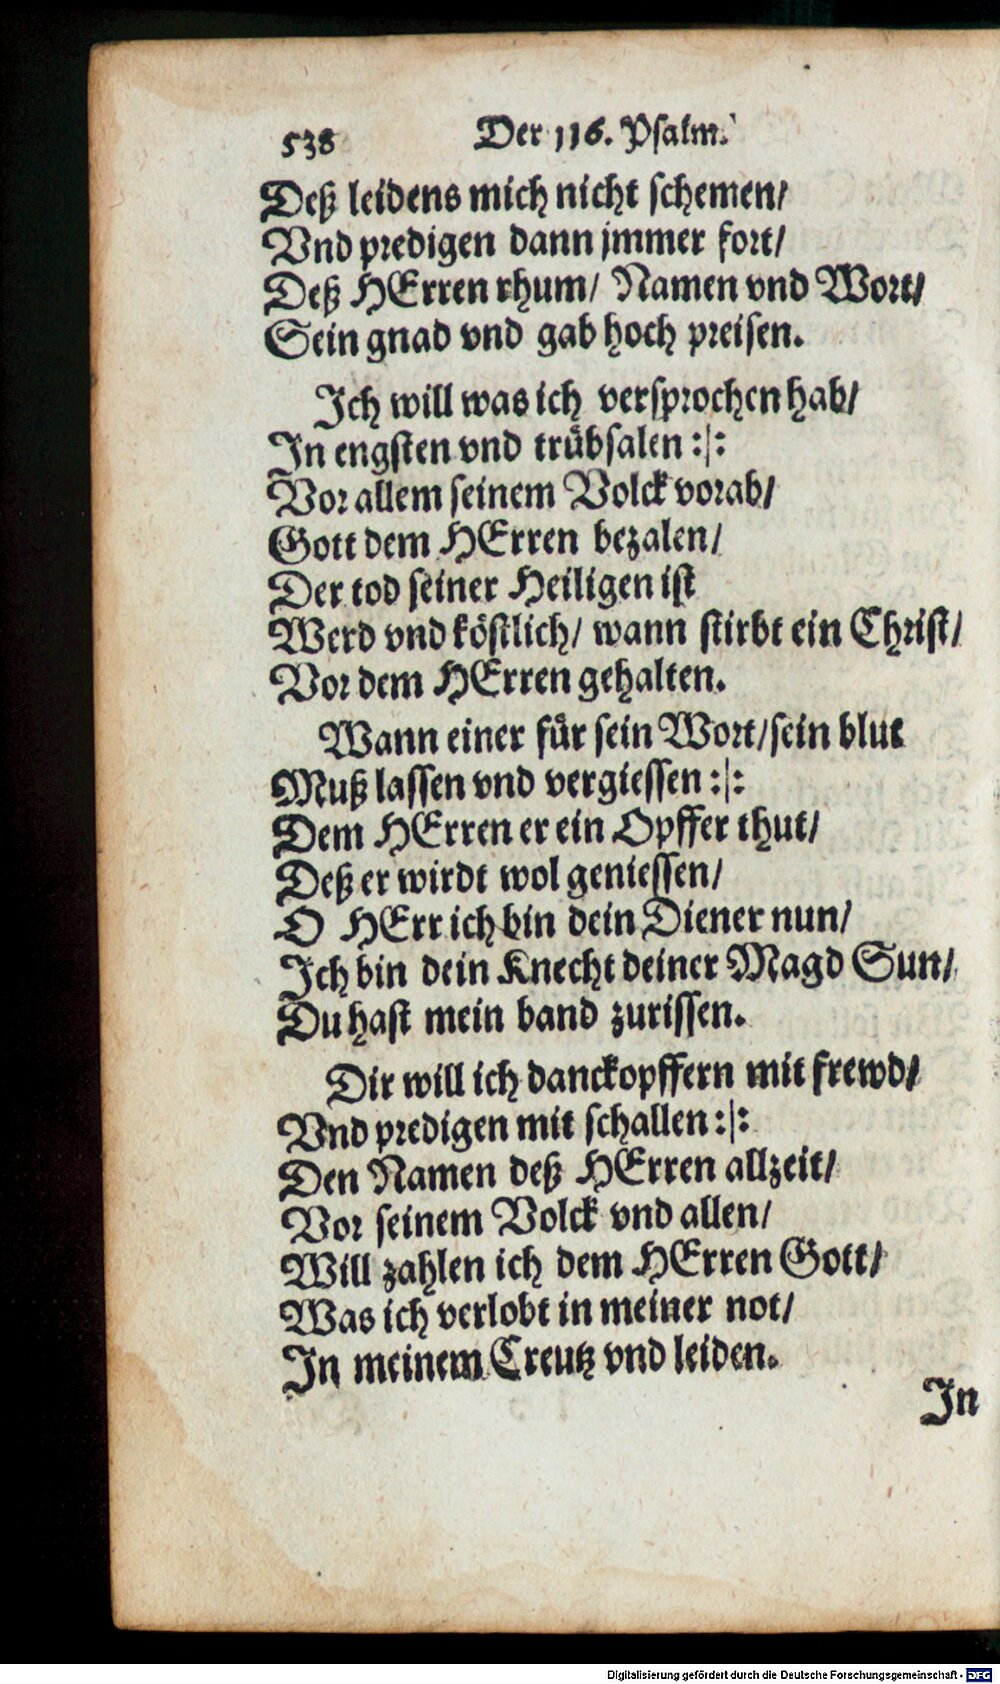 538 Der 116. Psalm.
Deß leidens mich nicht schemen/
Vnd predigen dann jmmer fort/
Deß HErren rhum/ Namen vnd Wort/
Sein gnad vnd gab hoch preisen.
Ich will was ich versprochen hab/
In engsten vnd trübsalen :/:
Vor allem seinem Volck vorab/
Gott dem HErren bezalen/
Der tod seiner Heiligen ist
Werd vnd köstlich/ wann stirbt ein Christ/
Vor dem HErren gehalten.
Wann einer für sein Wort/ sein blut
Muß lassen vnd vergiessen :/:
Dem HErren er ein Opffer thut/
Deß er wirdt wol geniessen/
O HErr ich bin dein Diener nun/
Ich bin dein Knecht deiner Magd Sun/
Du hast mein band zurissen.
Dir will ich danckopffern mit frewd/
Vnd predigen mit schallen :/:
Den Namen deß HErren allzeit/
Vor seinem Volck vnd allen/
Will zahlen ich dem HErren Gott/
Was ich verlobt in meiner not/
In meinem Creutz vnd leiden.
In
Digitalisierung gefördert durch die Deutsche Forschungsgemeinschaft - DFG